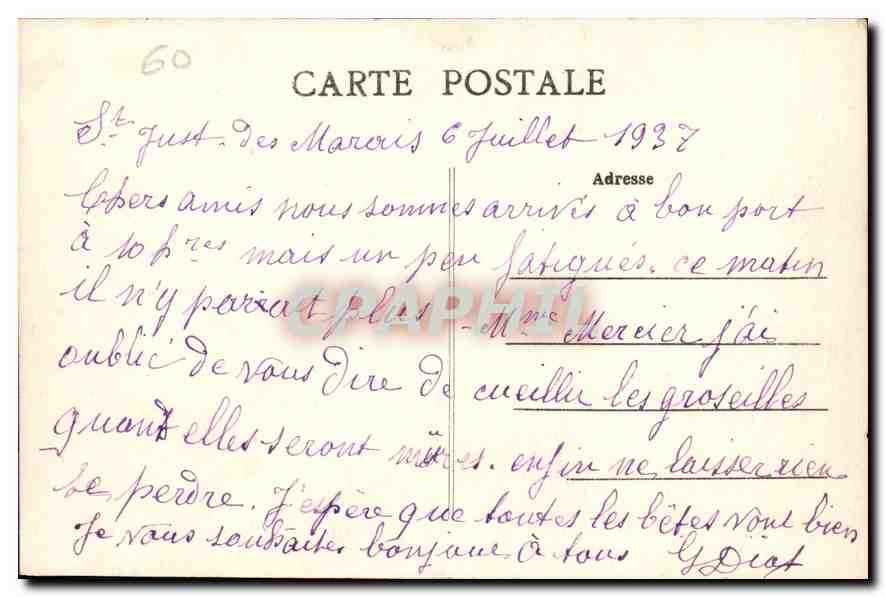 60
CARTE POSTALE
St Just-des Marais 6 Juillet 1937
Adresse
Chers amis nous sommes arrivés à bon port
à 10 hres mais un peu fatigués. ce matin
il n'y parait plus - Mme Mercier j'ai
oublié de vous dire de cueillir les groseilles
quand elles seront mûres. enfin ne laisser rien
se perdre. J'espère que toutes les bêtes vont bien
Je vous souhaites bonjour à tous G Diot
CPAPHIL